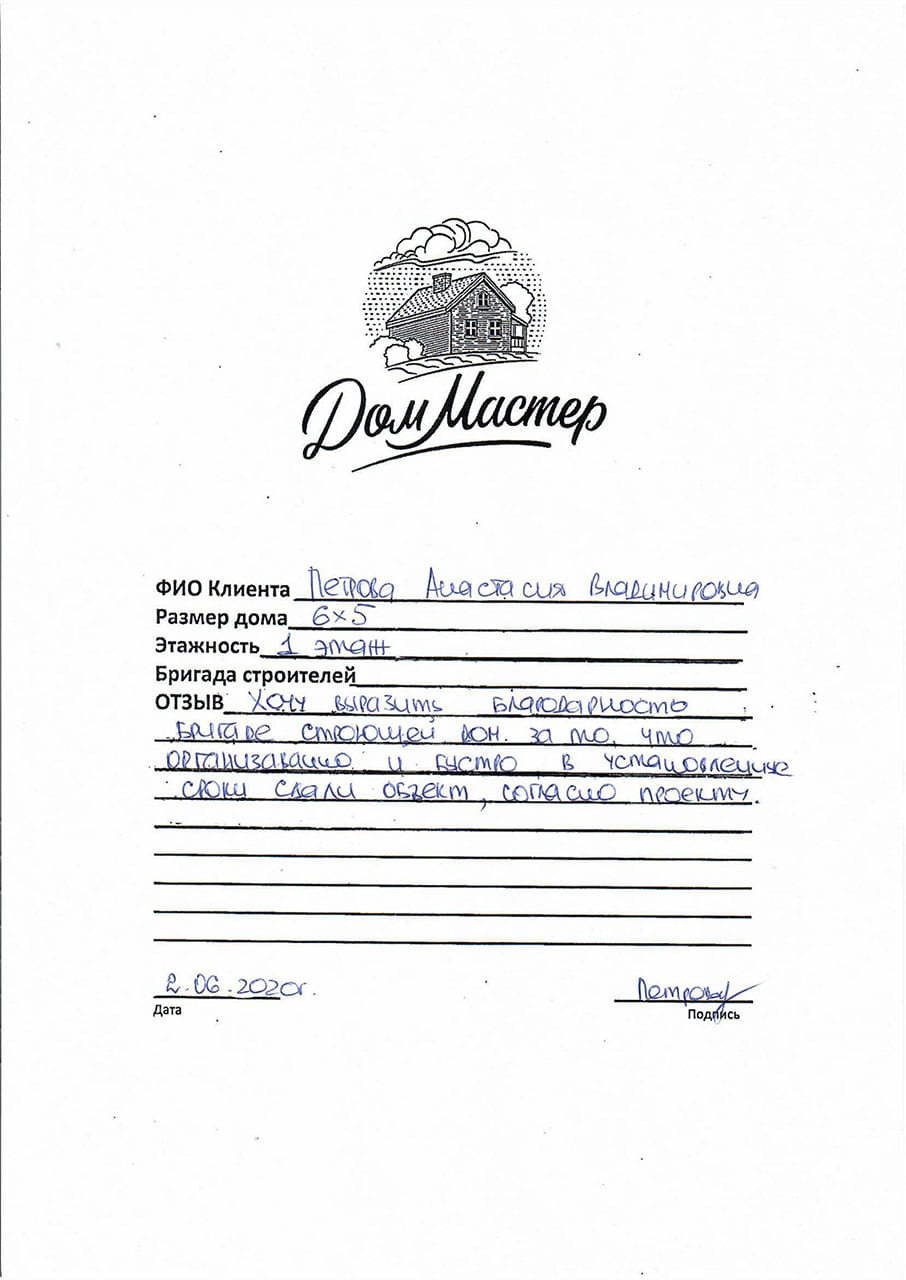 Дом Мастер
ФИО Клиента Петрова Анастасия Владимировна
Размер дома 6×5
Этажность 1 этаж
Бригада строителей
ОТЗЫВ Хочу выразить благодарность
бригаде строющей дом. за то, что
организованно и быстро в установленные
сроки сдали объект, согласно проекту.
2.06.2020г. Петрова
Дата Подпись